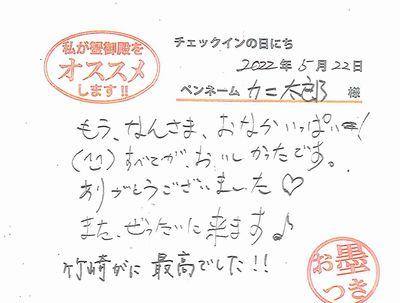 私が蟹御殿を
オススメ
します!!
チェックインの日にち
2022年5月22日
ペンネーム カニ太郎 様
もう、なんさま、おなかいっぱい=!
(^J^)すべてが、おいしかったです。
ありがとうございました♡
また、ぜったいに来ます♪
竹崎がに最高でした!!
お墨
つき